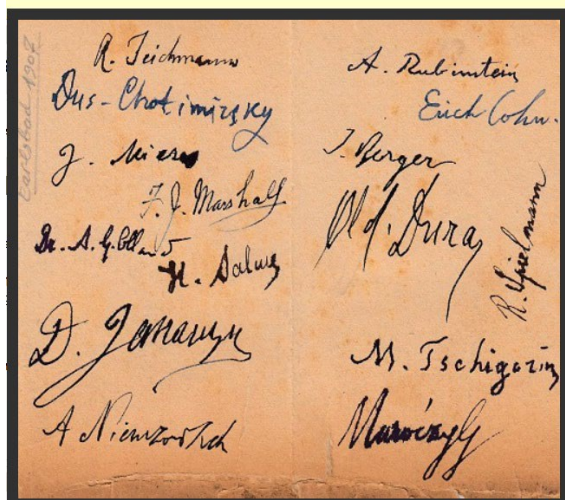 Carlsbad 1907
R. Teichmann
Dus-Chotimirsky
J. Mieses
F. J. Marshall
Dr. A. G. Olland
H. Salwe
D. Janowski
A Niemzowitsch
A. Rubinstein
Erich Cohn.
J. Berger
Old. Duras
R. Spielmann
M. Tschigorin
Maróczy G